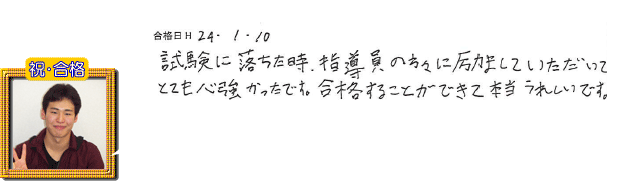 合格日 H 24・1・10
試験に落ちた時、指導員の方々に励ましていただいて
祝・合格
とても心強かったです。合格することができて本当うれしいです。